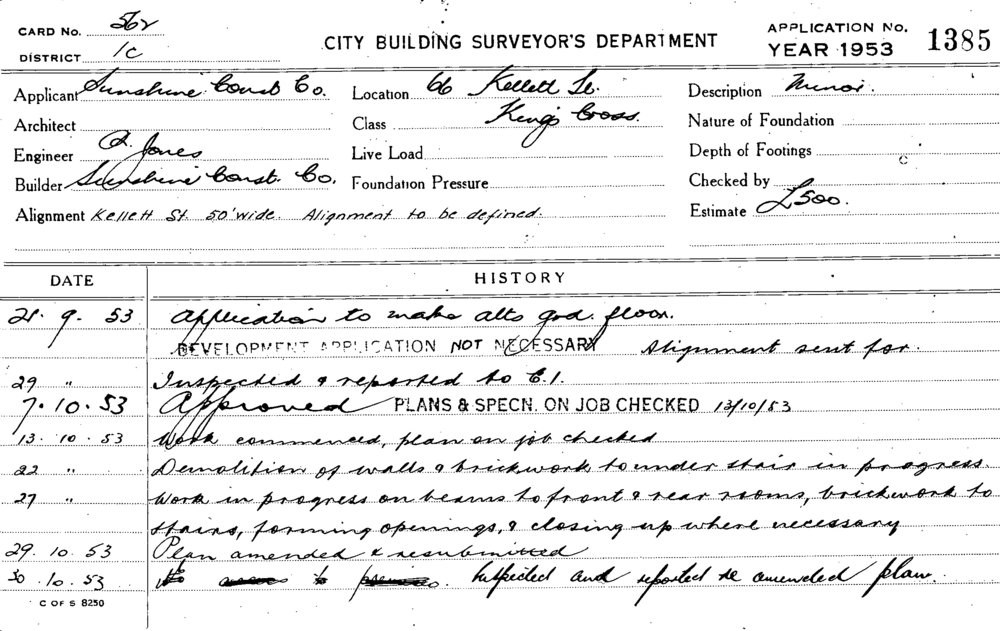 CARD No. 562
DISTRICT 1C
CITY BUILDING SURVEYOR'S DEPARTMENT
APPLICATION No.
YEAR 1953 1385
Applicant Sunshine Const Co. Location 66 Kellett St. Description Minor.
Architect Class Kings Cross. Nature of Foundation
Engineer A. Jones Live Load Depth of Footings
Builder Sunshine Const. Co. Foundation Pressure Checked by
Alignment Kellett St 50' wide. Alignment to be defined. Estimate £500.
DATE HISTORY
21. 9. 53 Application to make alts grd. floor.
DEVELOPMENT APPLICATION NOT NECESSARY Alignment sent for.
29 " Inspected & reported to C.I.
7. 10. 53 Approved PLANS & SPECN. ON JOB CHECKED 13/10/53
13. 10. 53 Work commenced, plan on job checked
22 " Demolition of walls & brickwork to under stair in progress.
27 " Work in progress on beams to front & rear rooms, brickwork to
stairs, forming openings, & closing up where necessary
29. 10. 53 Plan amended & resubmitted
30. 10. 53 Inspected and reported re amended plan.
C OF S 8250